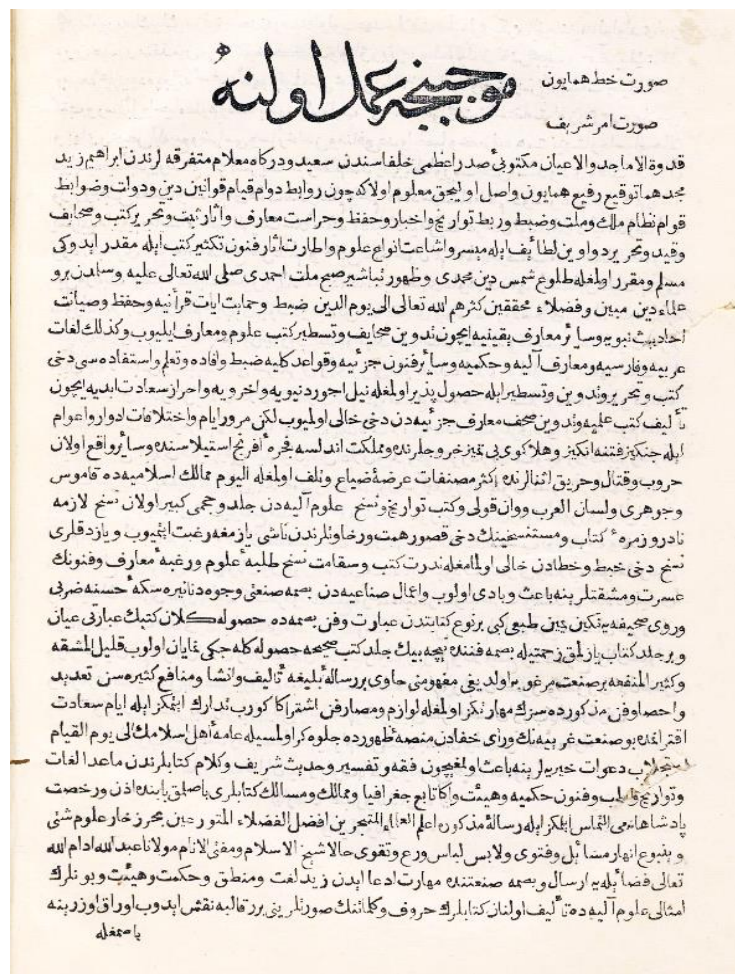 صورت خط همايون
موجبنجه عمل اولنه
صورت امر شريف
قدوة الاماجد والاعيان مكتوبئ صدر اعظمى خلفاسندن سعيد ودركاه معلام متفرقه لرندن ابراهيم زيد
مجدهما توقيع رفيع همايون واصل اوليجق معلوم اولاكه چون روابط دوام قيام قوانين دين ودولت وضوابط
قوام نظام ملك وملت وضبط وربط تواريخ واخبار وحفظ وحراست معارف واثار ثبت وتحرير كتب وصحايف
وقيد وتحرير دواوين لطائف ايله ميسر واشاعت انواع علوم واطارت اثار فنون تكثير كتب ايله مقدر ايدوكى
مسلم ومقرر اولمغله طلوع شمس دين محمدى وظهور تباشير صبح ملت احمدى صلى الله تعالى عليه وسلمدن برو
علماء دين مبين وفضلاء محققين كثرهم الله تعالى الى يوم الدين ضبط وحمايت ايات قرآنيه وحفظ وصيانت
احاديث نبويه وسائر معارف يقينيه ايچون تدوين صحايف وتسطير كتب علوم ومعارف ايليوب وكذلك لغات
عربيه وفارسيه ومعارف آليه وحكميه وسائر فنون جزئيه وقواعد كليه ضبط وافاده وتعلم واستفاده سى دخى
كتب وتحرير وتدوين وتسطير ايله حصول پذير اولمغله نيل اجور دنيويه واخرويه واحراز سعادت ابديه ايچون
تأليف كتب علميه وتدوين صحف معارف جزئيه دن دخى خالى اولميوب لكن مرور ايام واختلافات ادوار واعوام
ايله جنكيز فتنه انكيز وهلاكوى بى تميز خروجلرنده ومملكت اندلسه فجرۀ افرنج استيلاسنده وسائر واقع اولان
حروب وقتال وحريق اثنالرنده اكثر مصنفات عرضۀ ضياع وتلف اولمغله اليوم ممالك اسلاميه ده قاموس
وجوهرى ولسان العرب ووان قولى وكتب تواريخ ونسخ علوم آليه دن جلد وحجمى كبير اولان نسخ لازمه
نادر و زمرۀ كتاب ومستنسخينك دخى قصور همت ورخاوتلرندن ناشى يازمغه رغبت ايتميوب ويازدقلرى
نسخ دخى خبط وخطادن خالى اولمامغله ندرت كتب وسقامت نسخ طلبۀ علوم ورغبۀ معارف وفنونك
عسرت ومشقتلرينه باعث وبادى اولوب واعمال صناعيه دن بصمه صنعتى وجوه دنانيره سكۀ حسنه ضربى
وروى صحيفه يه نكين چين طبعى كبى بر نوع كتابتدن عبارت وفن بصمه ده حصوله كلان كتبك عبارتى عيان
وبر جلد كتاب يازلمق زحمتيله بصمه فننده نيچه بيك جلد كتب صحيحه حصوله كلمه جكى نمايان اولوب قليل المشقه
وكثير المنفعه بر صنعت مرغوبه اولديغى مفهومنى حاوى بر رسالۀ بليغه تأليف وانشا ومنافع كثيره سن تعديد
واحصا وفن مذكورده سزك مهارتكز اولمغله لوازم ومصارفن اشتراكا كورب تدارك ايتمكز ايله ايام سعادت
اقترانمده بو صنعت غريبه نك وراى خفادن منصۀ ظهورده جلوه كر اولمسيله عامۀ اهل اسلامك الى يوم القيام
استجلاب دعوات خيريه لرينه باعث اولمغيچون فقه وتفسير وحديث شريف وكلام كتابلرندن ماعدا لغات
وتواريخ وطب وفنون حكميه وهيئت واكا تابع جغرافيا وممالك ومسالك كتابلرى باصلمق بابنده اذن ورخصت
پادشاهانه مى التماس ايلمكز ايله رسالۀ مذكوره اعلم العلماء المتبحرين افضل الفضلاء المتورعين بحر زخار علوم شتى
وينبوع انهار مسائل وفتوى ولابس لباس ورع وتقوى حالا شيخ الاسلام ومفتئ الانام مولانا عبد الله ادام الله
تعالى فضائله يه ارسال وبصمه صنعتنده مهارت ادعا ايدن زيد لغت ومنطق وحكمت وهيئت وبونلرك
امثالى علوم آليه ده تأليف اولنان كتابلرك حروف وكلماتنك صورتلرينى برر قالبه نقش ايدوب اوراق اوزرينه
باصمغله